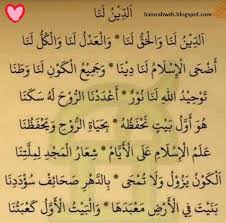 hamralwds.blogspot.com
اَلدِّيْنُ لَنَا
اَلدِّيْنُ لَنَا وَالْحَقُّ لَنَا * وَالْعَدْلُ لَنَا وَالْكُلُّ لَنَا
أَضْحَى الْإِسْلَامُ لَنَا دِيْنًا * وَجَمِيْعُ الْكَوْنِ لَنَا وَطَنًا
تَوْحِيْدُ اللهِ لَنَا نُوْرٌ * أَعْدَدْنَا الرُّوْحَ لَهُ سَكَنًا
هُوَ أَوَّلُ بَيْتٍ نَحْفَظُهُ * بِحَيَاةِ الرُّوْحِ وَيَحْفَظُنَا
عَلَمُ الْإِسْلَامِ عَلَى الْأَيَّامِ * شِعَارُ الْمَجْدِ لِمِلَّتِنَا
اَلْكَوْنُ يَزُوْلُ وَلَا تُمْحَى * بِالدَّهْرِ صَحَائِفُ سُؤْدَدِنَا
بُنِيَتْ فِي الْأَرْضِ مَعَابِدُهَا * وَالْبَيْتُ الْأَوَّلُ كَعْبَتُنَا